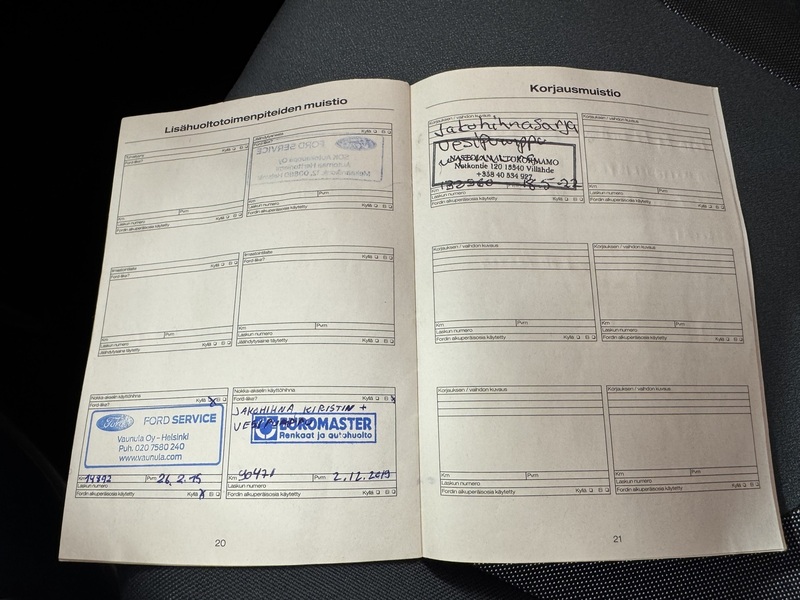 Lisähuoltotoimenpiteiden muistio
Ford-liike?
Kyllä
FORD SERVICE
Km
Pvm
Laskun numero
Fordin alkuperäisosia käytetty
Kyllä
Km
Pvm
Laskun numero
Fordin alkuperäisosia käytetty
Kyllä
Ilmastointilaite
Ford-liike?
Km
Pvm
Laskun numero
Jäähdytysaine täytetty
Kyllä
Ilmastointilaite
Ford-liike?
Kyllä
Km
Pvm
Laskun numero
Jäähdytysaine täytetty
Kyllä
Nokka-akselin käyttöhihna
Ford-liike?
Kyllä X
Ford
FORD SERVICE
Vaunula Oy - Helsinki
Puh. 020 7580 240
www.vaunula.com
Km
Pvm 26.2.15
Laskun numero
Fordin alkuperäisosia käytetty
Kyllä X
Nokka-akselin käyttöhihna
Ford-liike?
Kyllä
JAKOHIHNA KIRISTIN +
VESIPUMPPU
EUROMASTER
Renkaat ja autohuolto
Km 90471
Pvm 2.12.2019
Laskun numero
Fordin alkuperäisosia käytetty
Kyllä
20
Korjausmuistio
Korjauksen / vaihdon kuvaus
Jakohihnasarja
Vesipumppu
Nutkontie 120 15540 Villähde
+358 40 834 927
Laskun numero
Fordin alkuperäisosia käytetty
Kyllä
Korjauksen / vaihdon kuvaus
Km
Pvm
Laskun numero
Fordin alkuperäisosia käytetty
Kyllä
Korjauksen / vaihdon kuvaus
Km
Pvm
Laskun numero
Fordin alkuperäisosia käytetty
Kyllä
Korjauksen / vaihdon kuvaus
Km
Pvm
Laskun numero
Fordin alkuperäisosia käytetty
Kyllä
Korjauksen / vaihdon kuvaus
Km
Pvm
Laskun numero
Fordin alkuperäisosia käytetty
Kyllä
Korjauksen / vaihdon kuvaus
Km
Pvm
Laskun numero
Fordin alkuperäisosia käytetty
Kyllä
21